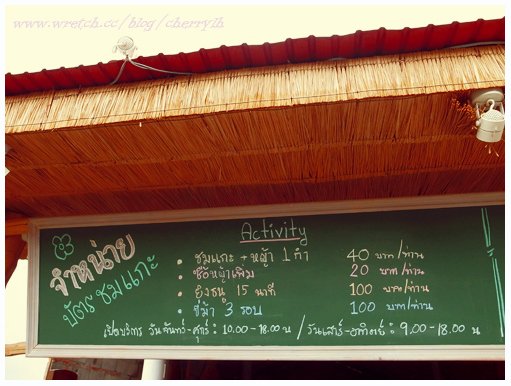 www.wretch.cc/blog/cherrylh
จำหน่าย
บัตร ชมแกะ
Activity
• ชมแกะ + หญ้า 1 กำ 40 บาท/ท่าน
• ซื้อหญ้าเพิ่ม 20 บาท/ท่าน
• ยิงธนู 15 นาที 100 บาท/ท่าน
• ขี่ม้า 3 รอบ 100 บาท/ท่าน
เปิดบริการ วันจันทร์-ศุกร์ : 10.00-18.00 น / วันเสาร์-อาทิตย์ : 9.00-18.00 น